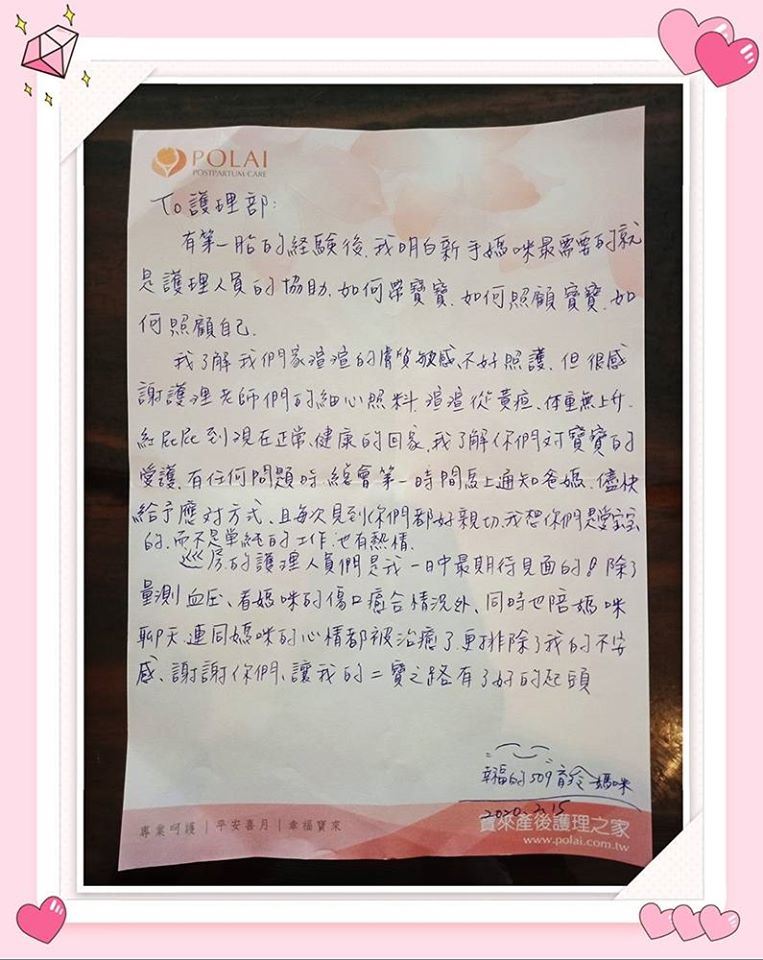 POLAI
POSTPARTUM CARE
To護理部:
有第一胎的経験後,我明白新手媽咪最需要的就
是護理人員的協助,如何帶寶寶,如何照顧寶寶,如
何照顧自己.
我了解我們家渲渲的膚質敏感、不好照護、但很感
謝護理老師們的細心照料,渲渲從黃疸、体重無上升、
紅屁屁到現在正常、健康的回家,我了解你們对寶寶的
愛護,有任何問題時,總會第一時間馬上通知爸媽、儘快
給予應对方式、且每次見到你們都好親切,我想你們是愛宝宝
的,而不是單純的工作,也有熱情.
巡房的護理人員們是我一日中最期待見面的!除了
量測血压、看媽咪的傷口癒合情況外、同時也陪媽咪
聊天,連同媽咪的心情都被治癒了,更排除了我的不安
感、謝謝你們、讓我的二寶之路有了好的起頭
幸福的509育伶媽咪
2020.2.15
專業呵護|平安喜月|幸福寶來
寶來產後護理之家
www.polai.com.tw